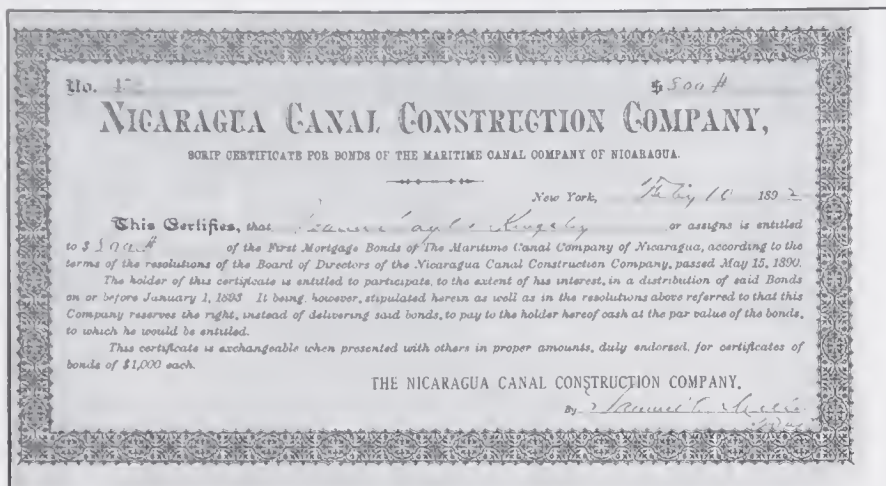 No.
$ 500 #
NICARAGUA CANAL CONSTRUCTION COMPANY,
SCRIP CERTIFICATE FOR BONDS OF THE MARITIME CANAL COMPANY OF NICARAGUA.
New York, 189 2
This Certifies, that Kingsley or assigns is entitled
to $ 500 # of the First Mortgage Bonds of The Maritime Canal Company of Nicaragua, according to the
terms of the resolutions of the Board of Directors of the Nicaragua Canal Construction Company, passed May 15, 1890.
The holder of this certificate is entitled to participate, to the extent of his interest, in a distribution of said Bonds
on or before January 1, 1893 It being, however, stipulated herein as well as in the resolutions above referred to that this
Company reserves the right, instead of delivering said bonds, to pay to the holder hereof cash at the par value of the bonds,
to which he would be entitled.
This certificate is exchangeable when presented with others in proper amounts, duly endorsed, for certificates of
bonds of $1,000 each.
THE NICARAGUA CANAL CONSTRUCTION COMPANY,
By Samuel